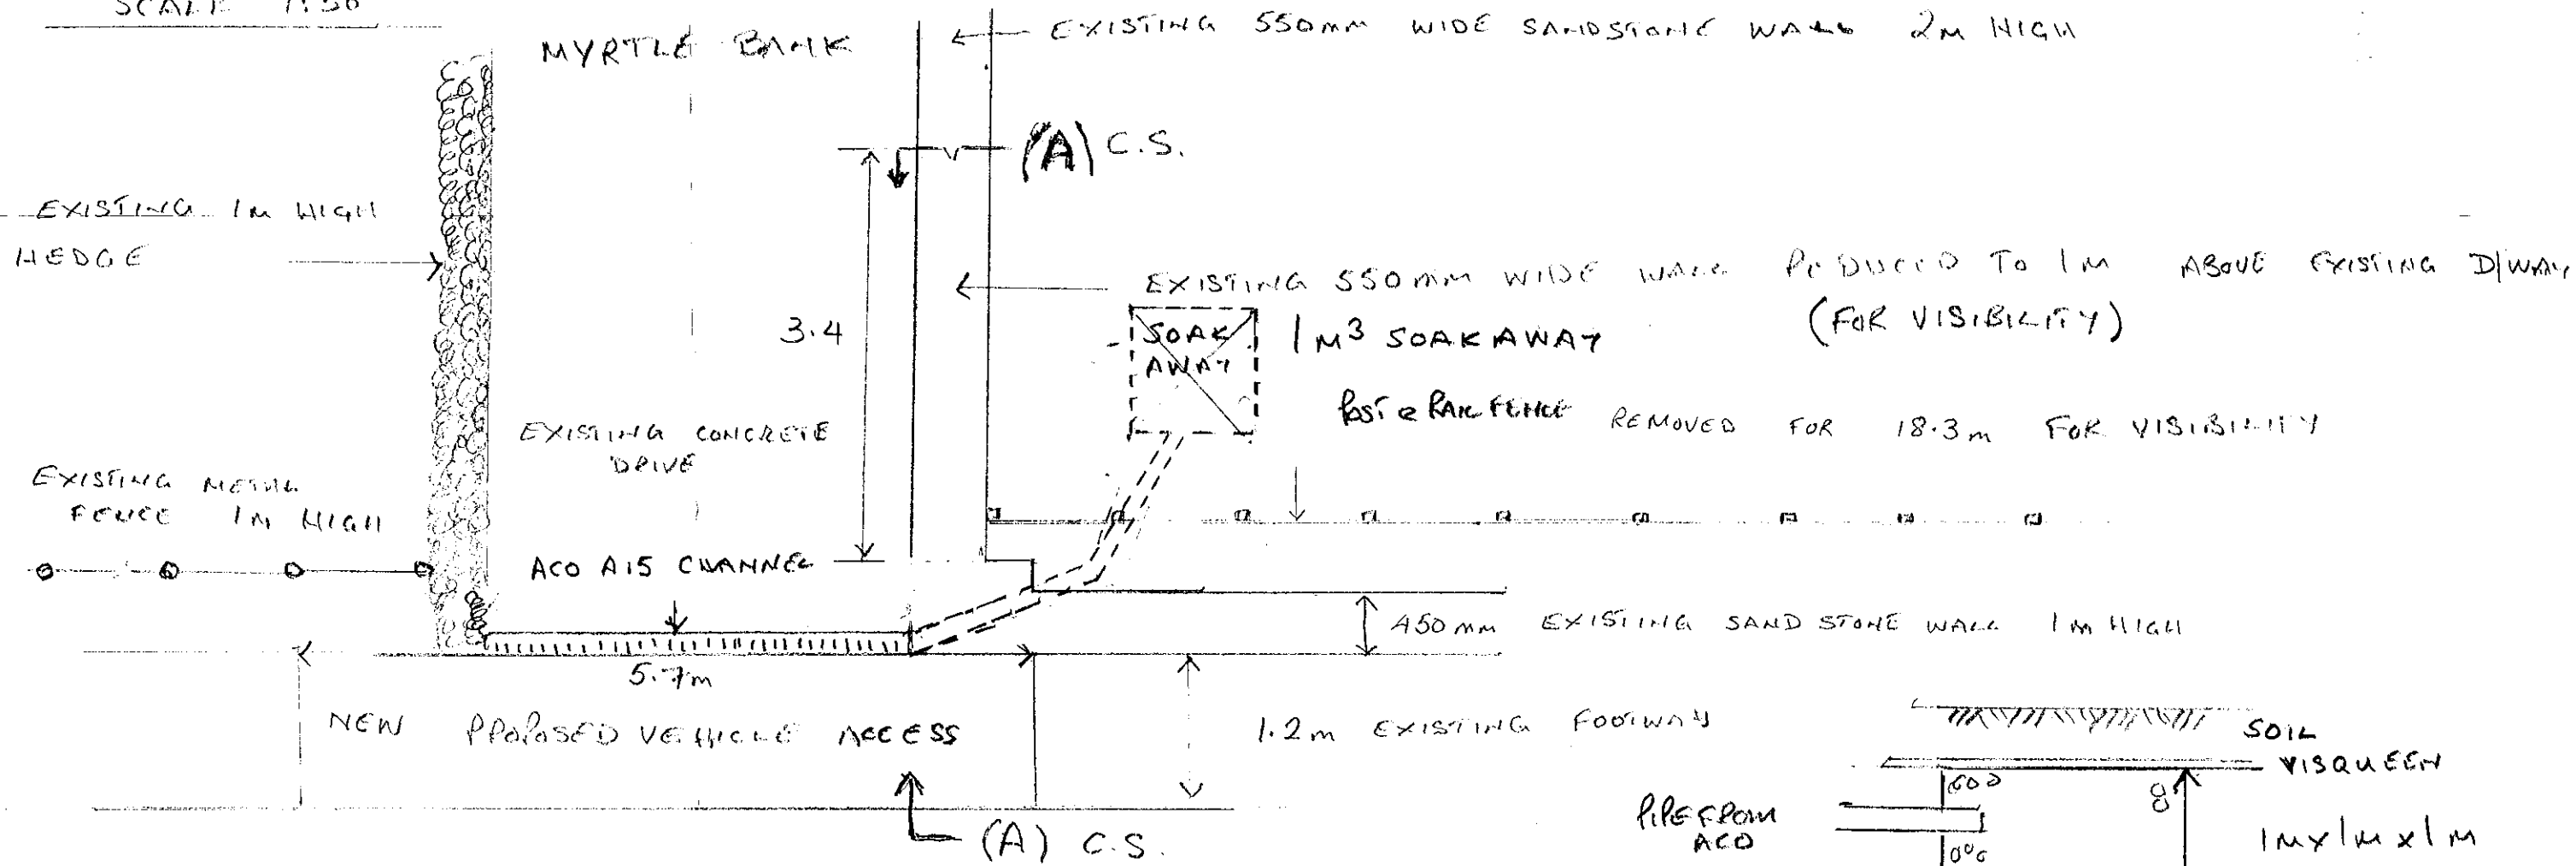 SCALE 1:50
MYRTLE BANK
EXISTING 550mm WIDE SANDSTONE WALL 2M HIGH
(A) C.S.
EXISTING 1M HIGH
HEDGE
EXISTING 550mm WIDE WALL REDUCED TO 1M ABOVE EXISTING D/WAY
(FOR VISIBILITY)
3.4
SOAK
AWAY
1M³ SOAKAWAY
POST & RAIL FENCE REMOVED FOR 18.3m FOR VISIBILITY
EXISTING CONCRETE
DRIVE
EXISTING METAL
FENCE 1M HIGH
ACO A15 CHANNEL
450mm EXISTING SAND STONE WALL 1M HIGH
5.7m
NEW PROPOSED VEHICLE ACCESS
1.2m EXISTING FOOTWAY
SOIL
VISQUEEN
PIPE FROM
ACO
1M x 1M x 1M
(A) C.S.